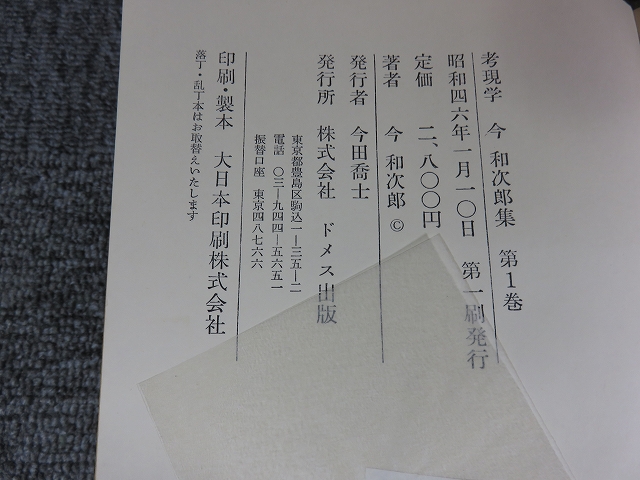 考現学　今 和次郎集　第1巻
昭和四六年一月一〇日　第一刷発行
定価　二、八〇〇円
著者　今 和次郎 ©
発行者　今田喬士
発行所　株式会社　ドメス出版
東京都豊島区駒込一―三五―二
電話　〇三―九四四―五六五一
振替口座　東京四八七六六
印刷・製本　大日本印刷株式会社
落丁・乱丁本はお取替えいたします